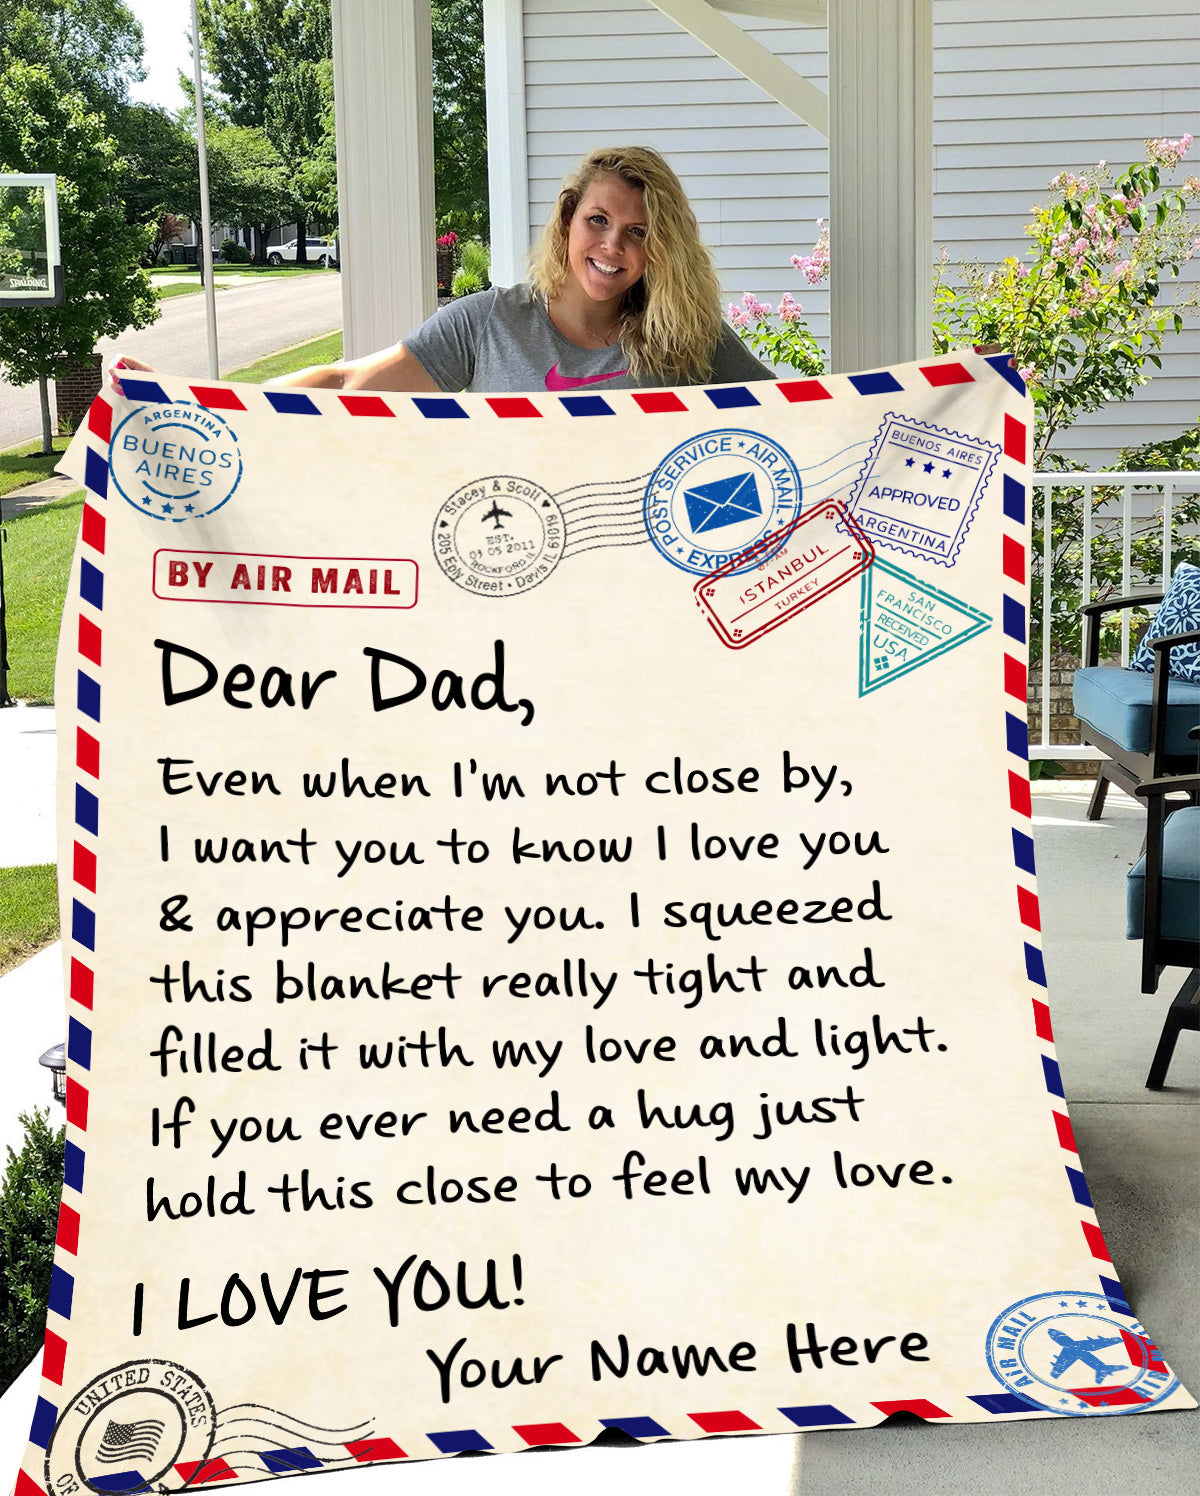 SPALDING
ARGENTINA
BUENOS
AIRES
Stacey & Scott
EST.
03 05 2011
ROCKFORD IL
205 Eply Street • Davis IL 61019
POST SERVICE ★ AIR MAIL
★ EXPRESS ★
BUENOS AIRES
APPROVED
ARGENTINA
ISTANBUL
TURKEY
SAN
FRANCISCO
RECEIVED
USA
BY AIR MAIL
Dear Dad,
Even when I'm not close by,
I want you to know I love you
& appreciate you. I squeezed
this blanket really tight and
filled it with my love and light.
If you ever need a hug just
hold this close to feel my love.
I LOVE YOU!
Your Name Here
AIR MAIL
UNITED STATES
OF